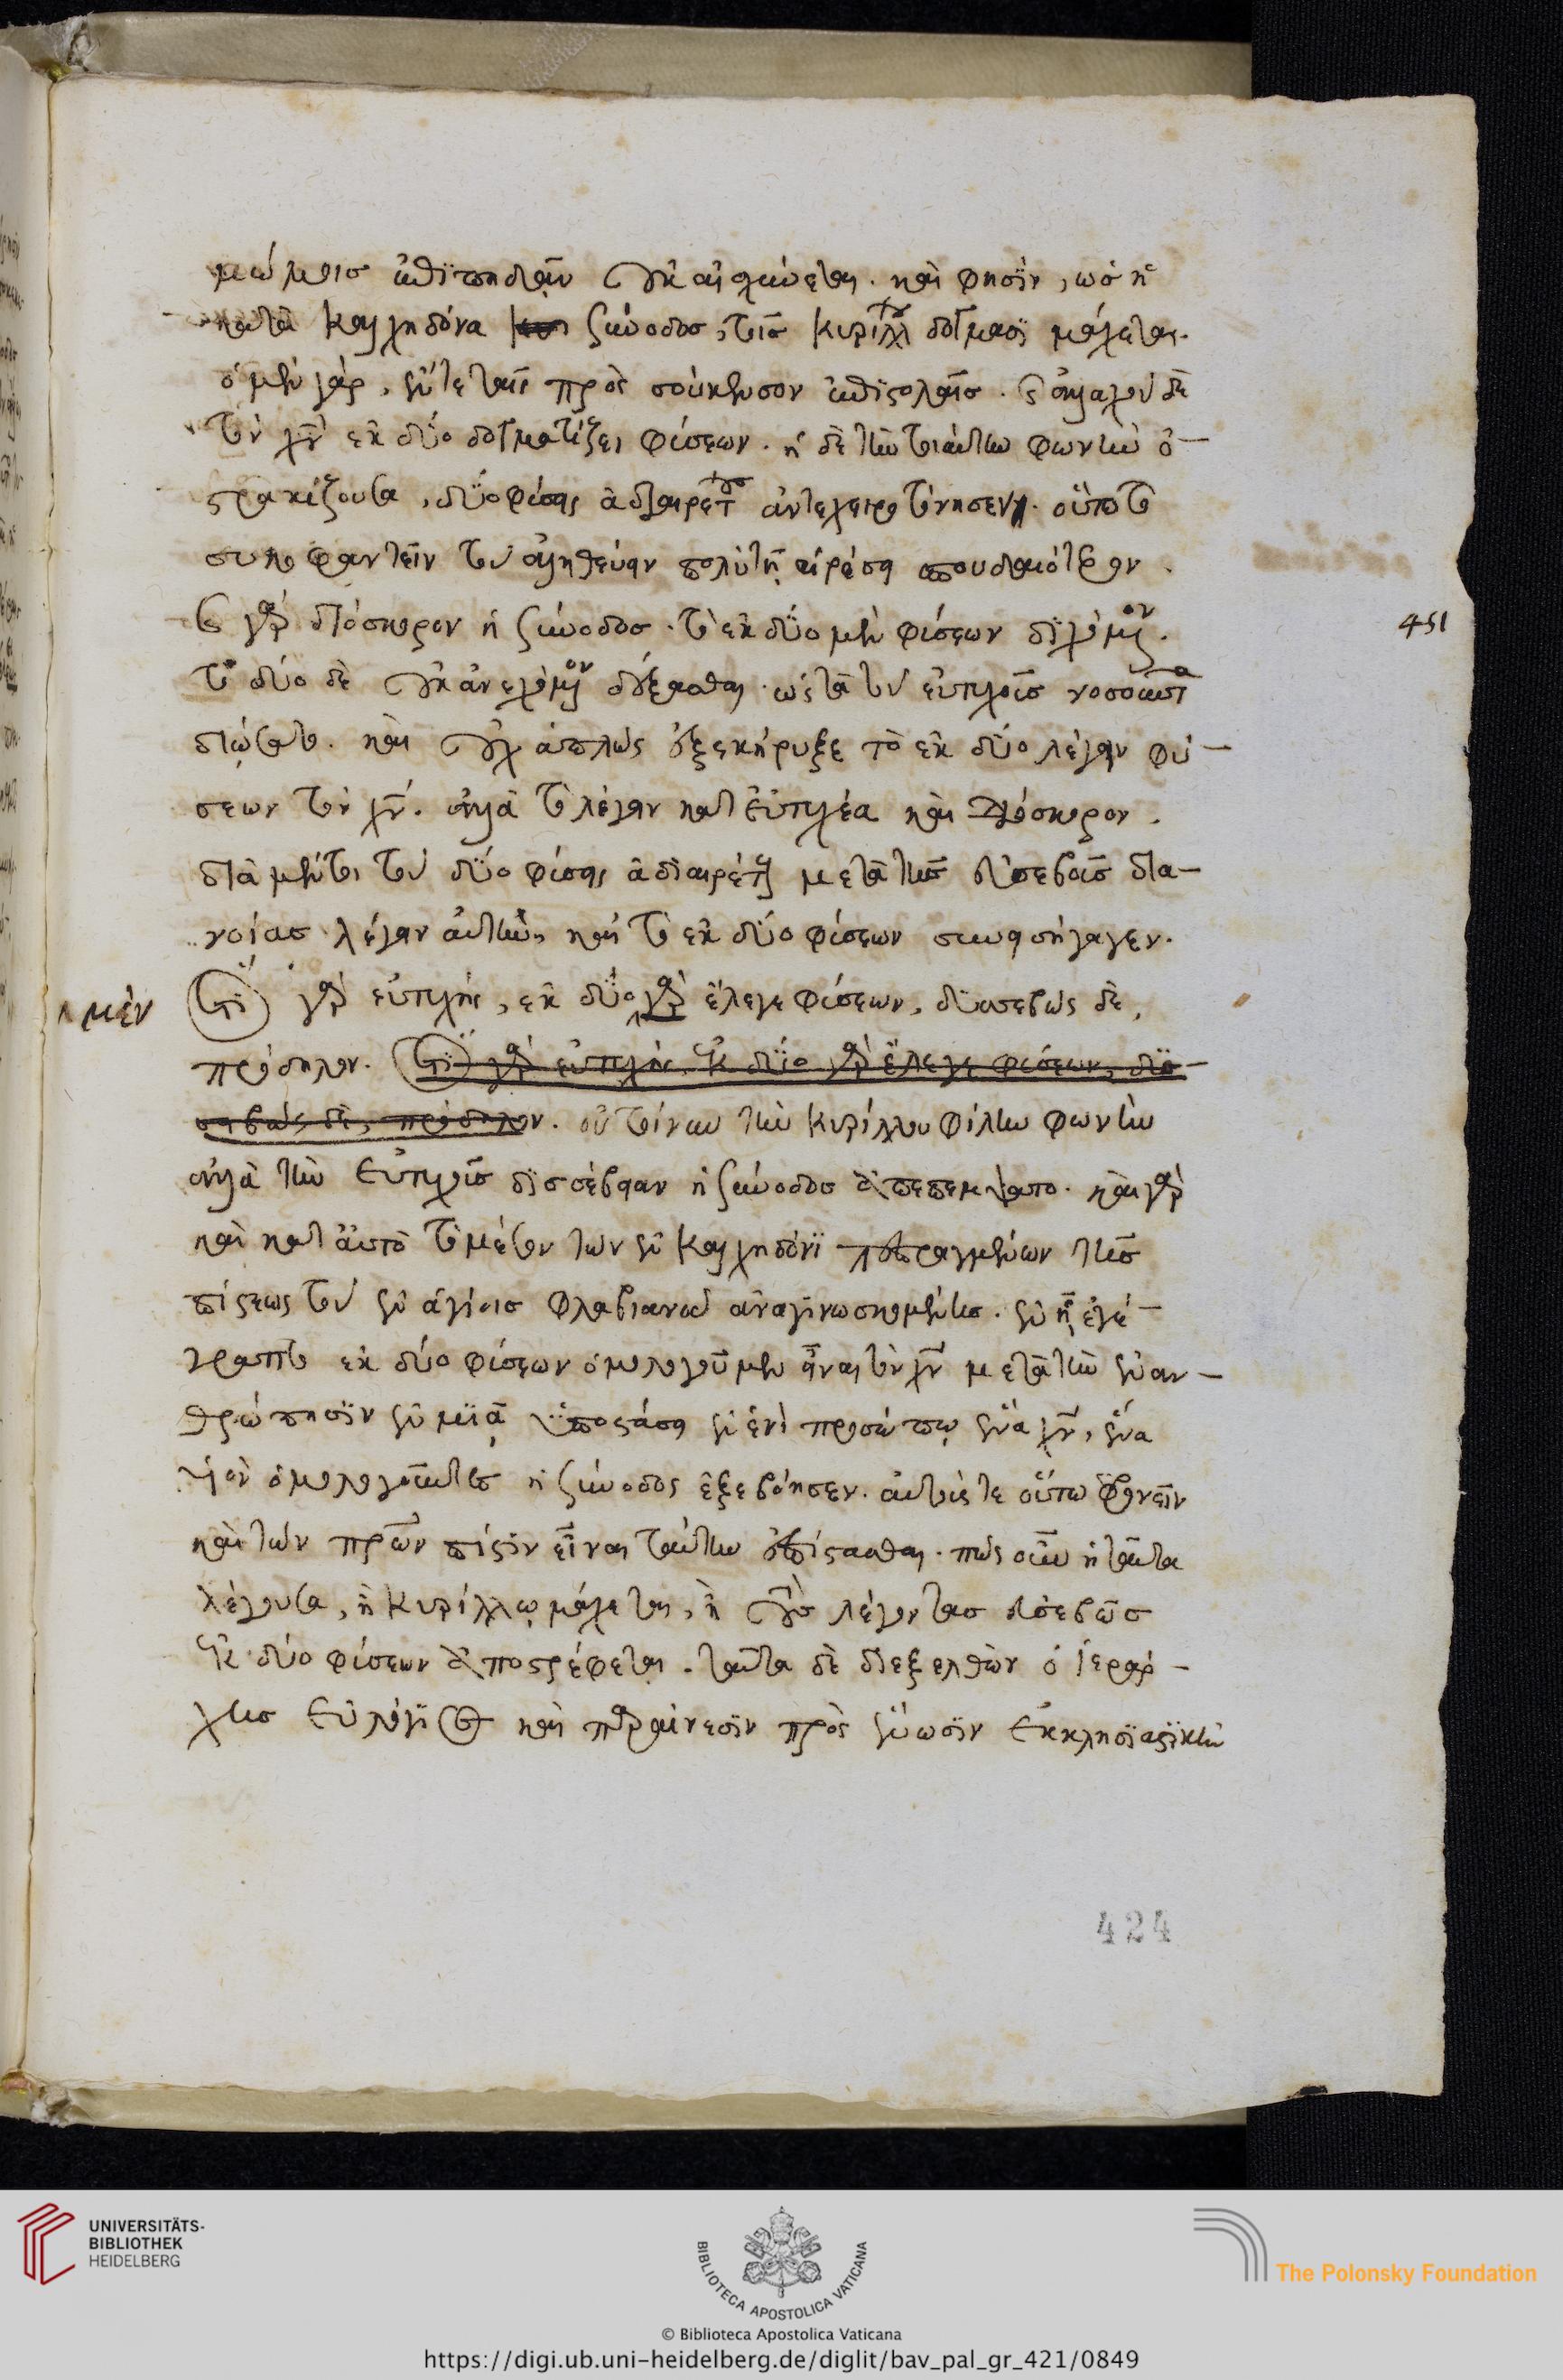 μώμοις ἐπιπηδᾶν οὐκ αἰσχύνεται. καὶ φησὶν, ὡς ἡ
κατὰ Καλχηδόνα σύνοδος, τοῖς Κυρίλλου δόγμασι μάχεται.
ὁ μὲν γὰρ, ἔν τε ταῖς πρὸς σούκενσον ἐπιστολαῖς. καὶ ἀλλαχοῦ δὲ
τὸν χν̅ ἐκ δύο δογματίζει φύσεων. ἡ δὲ τὴν τοιαύτην φωνὴν ὀ-
στρακίζουσα, δύο φύσεις ἀδιαιρέτους ἀντεχειροτόνησεν. οὕτω τὸ
συκοφαντεῖν τὴν ἀλήθειαν πολὺ τῇ αἱρέσει σπουδαιότερον.
γὰρ διόσκορον ἡ σύνοδος. τὸ ἐκ δύο μὲν φύσεων δεχόμενον.
τὸ δύο δὲ οὐκ ἀνεχόμενον δέξασθαι. ὡς τὰ τὴν εὐτυχοῦς νοσοῦντα
διώσατο. καὶ οὐχ ἁπλῶς ἐξεκήρυξε τὸ ἐκ δύο λέγειν φύ-
σεων τὸν χν̅. ἀλλὰ τὸ λέγειν κατ Εὐτυχέα καὶ Διόσκορον.
διὰ μέντοι τὸν δύο φύσεις ἀδιαιρέτους μετὰ τῆς εὐσεβοῦς δια-
νοίας λέγειν αὐτὴν, καὶ τὸ ἐκ δύο φύσεων συνεισήγαγεν.
μὲν
ὅτι γὰρ εὐτυχὴς, ἐκ δύο γὰρ ἔλεγε φύσεων, δυσσεβῶς δὲ,
πρόδηλον. ὅτι γὰρ εὐτυχὴς ἐκ δύο γὰρ ἔλεγε φύσεων, δυσ-
σεβῶς δὲ, πρόδηλον. οὐ τοίνυν τὴν Κυρίλλου φίλην φωνὴν
ἀλλὰ τὴν Εὐτυχοῦς δυσσέβειαν ἡ σύνοδος ἀπεπέμψατο. καὶ γὰρ
καὶ κατ αὐτὸ τὸ μέσον τῶν ἐν Καλχηδόνι πεπραγμένων τῆς
πίστεως τοῦ ἐν ἁγίοις Φλαβιανοῦ ἀναγινωσκομένης. ἐν ᾗ ἐγέ-
γραπτο ἐκ δύο φύσεων ὁμολογοῦμεν εἶναι τὸν χν̅ μετὰ τὴν ἐναν-
θρώπησιν ἐν μιᾷ ὑποστάσει ἐν ἑνὶ προσώπῳ ἕνα χν̅, ἕνα
υἱὸν ὁμολογοῦντες ἡ σύνοδος ἐξεβόησεν. αὐτούς τε οὕτω φρονεῖν
καὶ τῶν πρων πίστιν εἶναι ταύτην ἐπίστασθαι. πῶς οὖν ἡ ταῦτα
λέγουσα, ἢ Κυρίλλῳ μάχεται, ἢ τοὺς λέγοντας εὐσεβῶς
ἐκ δύο φύσεων ἀποστρέφεται. ταῦτα δὲ διεξελθὼν ὁ ἱεράρ-
χης Εὐλόγιος καὶ παραίνεσιν πρὸς ἕνωσιν Ἐκκλησιαστικὴν
451
424
UNIVERSITÄTS-
BIBLIOTHEK
HEIDELBERG
BIBLIOTECA APOSTOLICA VATICANA
© Biblioteca Apostolica Vaticana
The Polonsky Foundation
https://digi.ub.uni-heidelberg.de/diglit/bav_pal_gr_421/0849